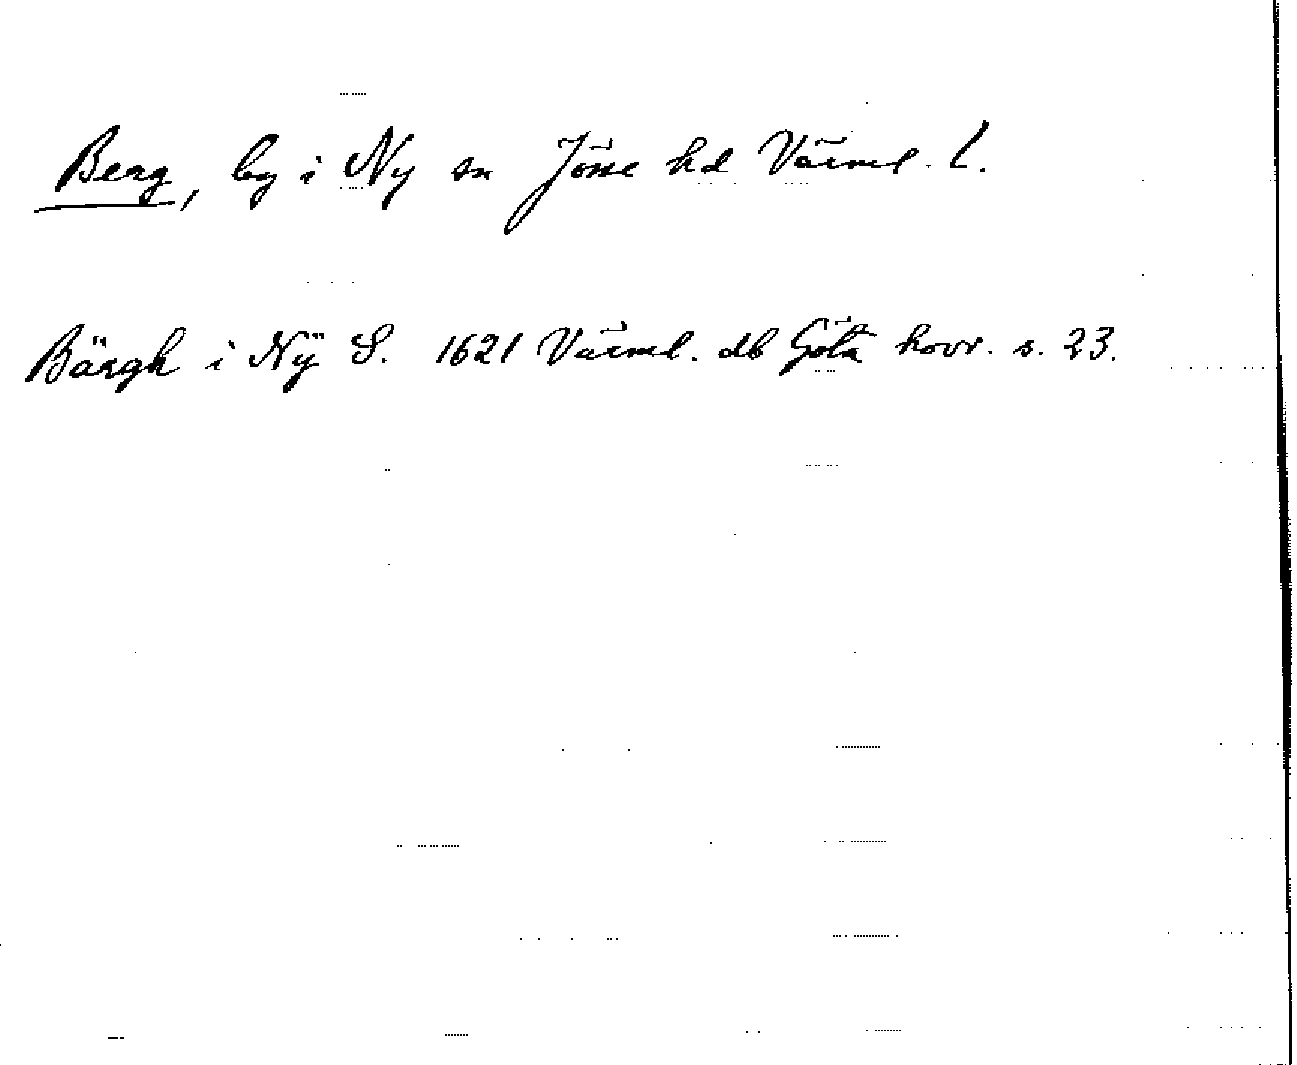 Berg, by i Ny sn Jösse hd Värml. l.
Bärgh i Nÿ S. 1621 Värml. db Göta hovr. s. 23.